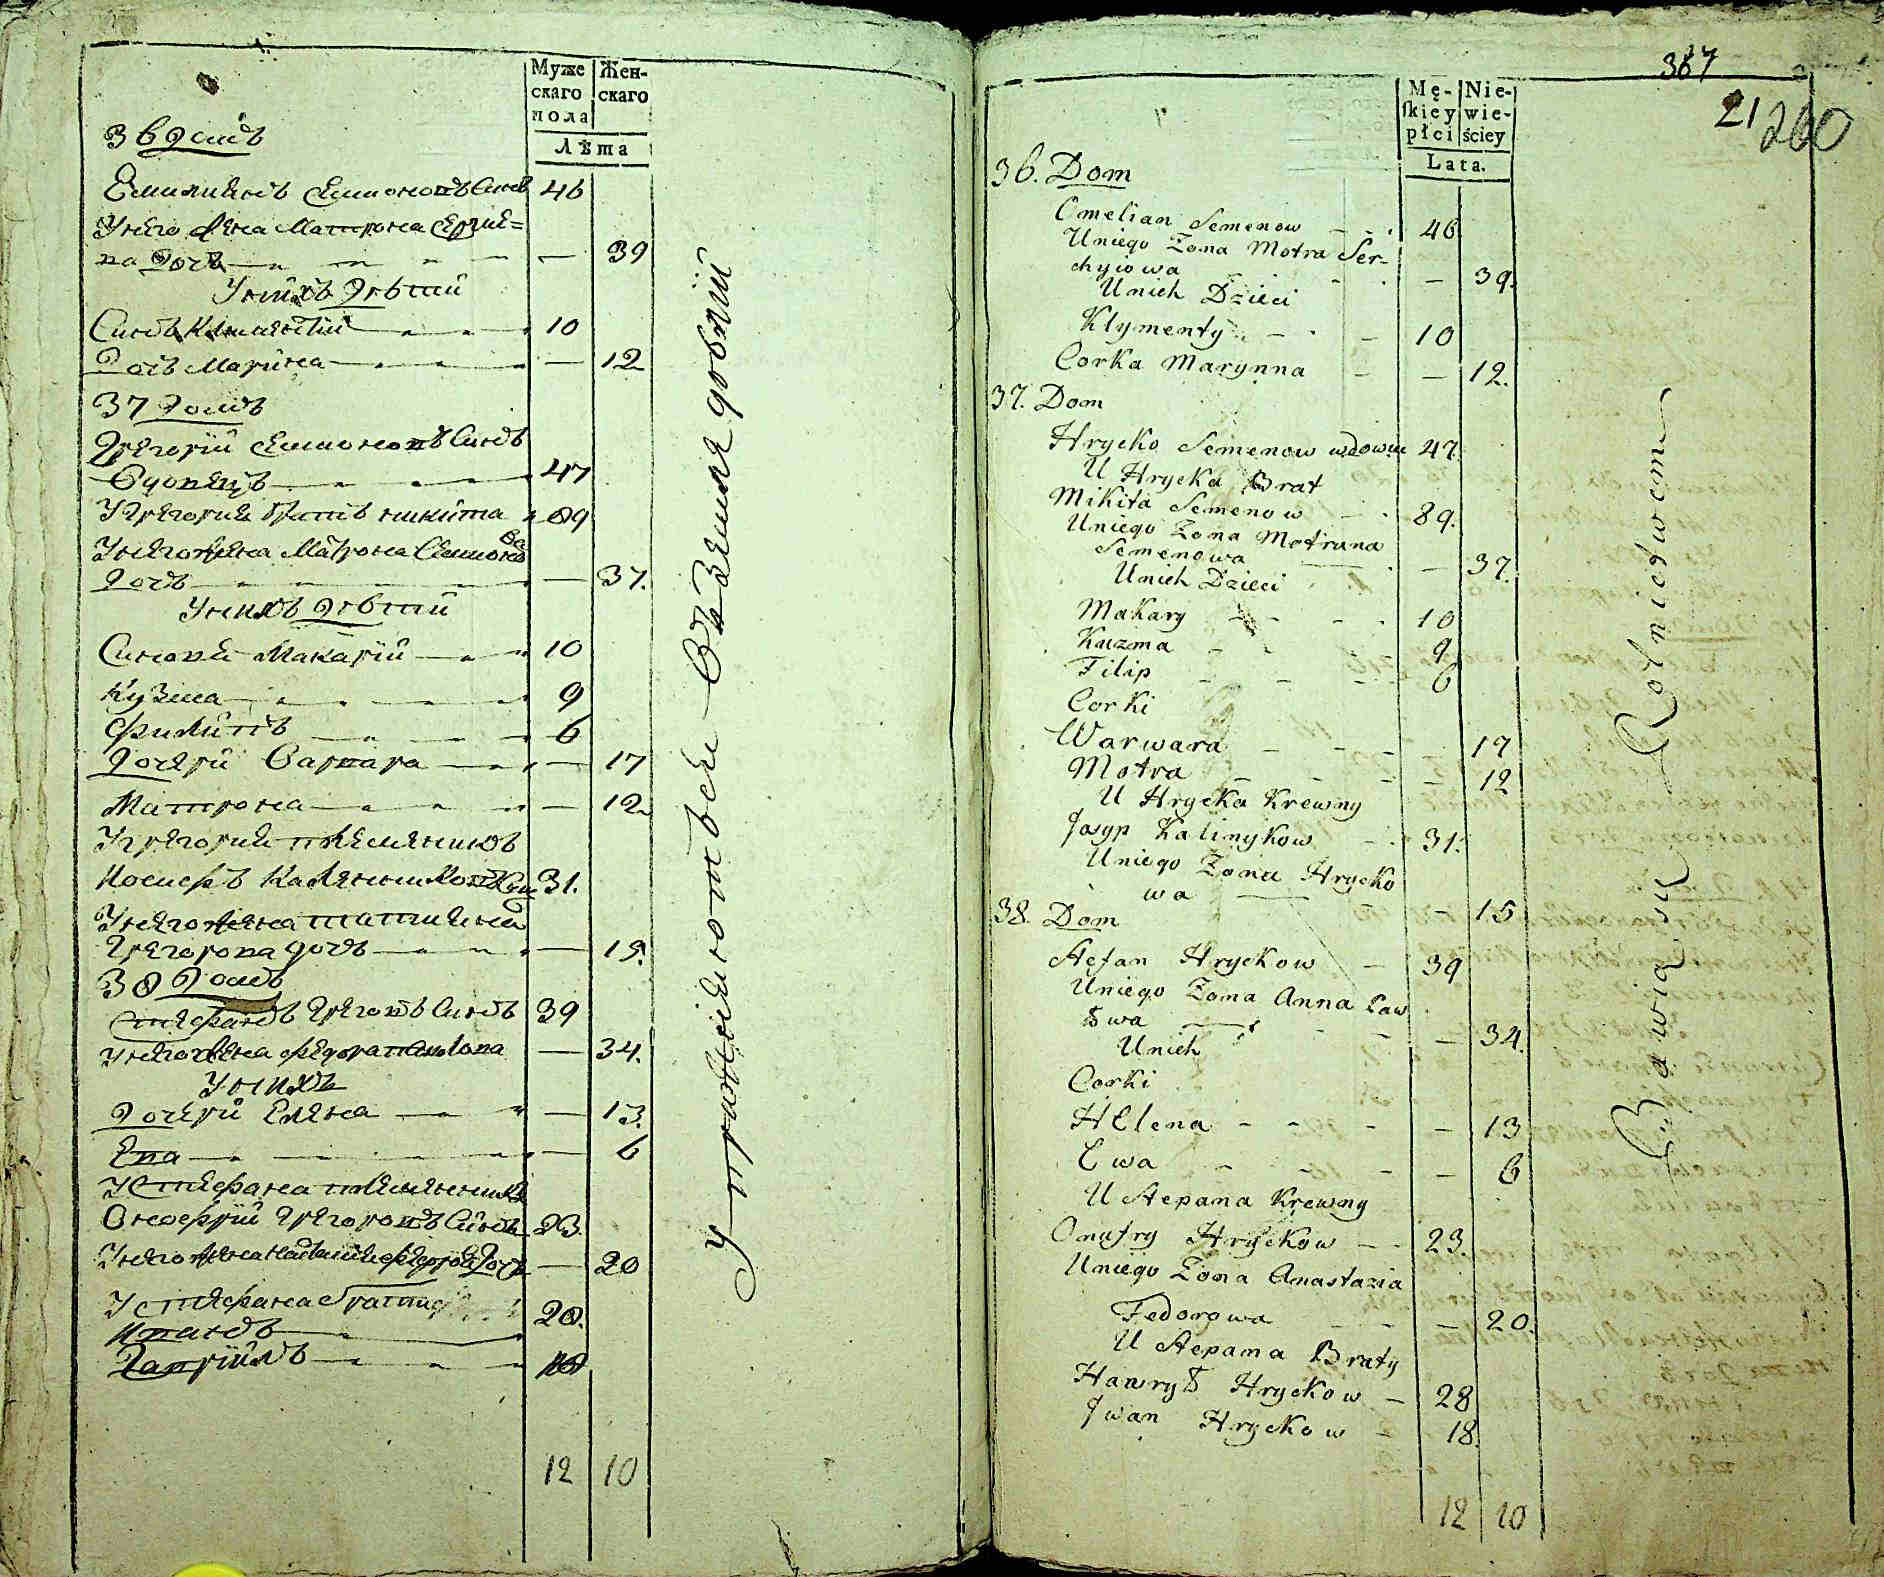 Муже
скаго
пола
Жен-
скаго
Лѣта
36 Домъ
Емилиянъ Симоновъ Синъ 46
У него Жена Матрона Сергие=
ва Дочь — 39
У нихъ Дѣтий
Синъ Климентий 10
Дочь Марина — 12
37 Домъ
Григорий Симоновъ Синъ
Вдовецъ 47
У Григория братъ Никита 89
У него Жена Матрона Симоно
ва
Дочь — 37.
У нихъ Дѣтий
Синови Макарий 10
Кузма 9
Филипъ 6
Дочери Варвара — 17
Матрона — 12
У Григория племяникъ
Иосифъ Калениковъ Син 31.
У него Жена Татияна
Григорова дочь — 15.
38 Домъ
Стефанъ Григоровъ Синъ 39
У него Жена — 34.
У нихъ
Дочери Елена — 13.
Ева — 6
У Стефана племянникъ
Онофрий Григоровъ Синъ 23.
У него Жена Настасия Федорова Дочь — 20
У Стефана брати
Иванъ 28.
Гавриилъ 18
12 10
упражняются в Земледелии
387
21 260
Mę-
skiey
płci
Nie-
wie-
ściey
Lata.
36. Dom
Omelian Semenow 46
Uniego Zona Motra Ser-
chyiowa — 39.
Unich Dzieci
Klymenty 10
Corka Marynna — 12.
37. Dom
Hrycko Semenow wdowiec 47.
U Hrycka Brat
Mikita Semenow 89.
Uniego Zona Motruna
Semenowa — 37.
Unich Dzieci
Makary 10
Kuzma 9
Filip 6
Corki
Warwara 17
Motra — 12
U Hrycka Krewny
Josyp Kalinykow 31.
Uniego Zona Hrycko
wa — 15
38. Dom
Stefan Hryckow 39
Uniego Zona Anna Paw
łwa — 34.
Unich
Corki
Helena — 13
Ewa — 6
U Stepana Krewny
Onufry Hryckow 23.
Uniego Zona Anastazia
Fedorowa — 20.
U Stepana Braty
Hawrył Hryckow — 28
Jwan Hryckow 18.
12 10
Bawią się Rolnictwem